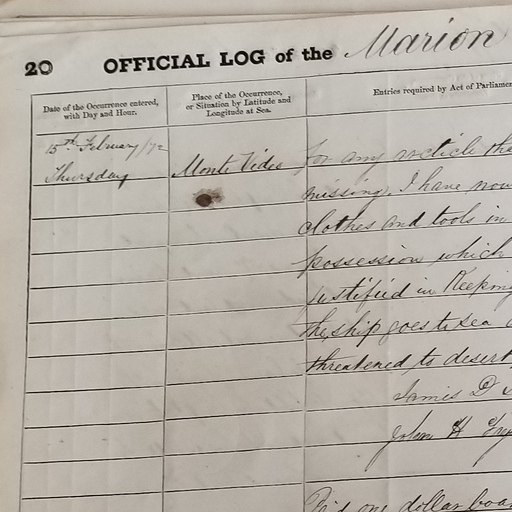 20 OFFICIAL LOG of the Marion
Date of the Occurrence entered,
with Day and Hour.
Place of the Occurrence,
or Situation by Latitude and
Longitude at Sea.
Entries required by Act of Parliamen
15th February/72
Thursday
Monte Video
for any article tha
missing. I have now
clothes and tools in
possession which
justified in Keeping
the ship goes to sea
threatened to desert
James D
John H
Paid one dollar boa